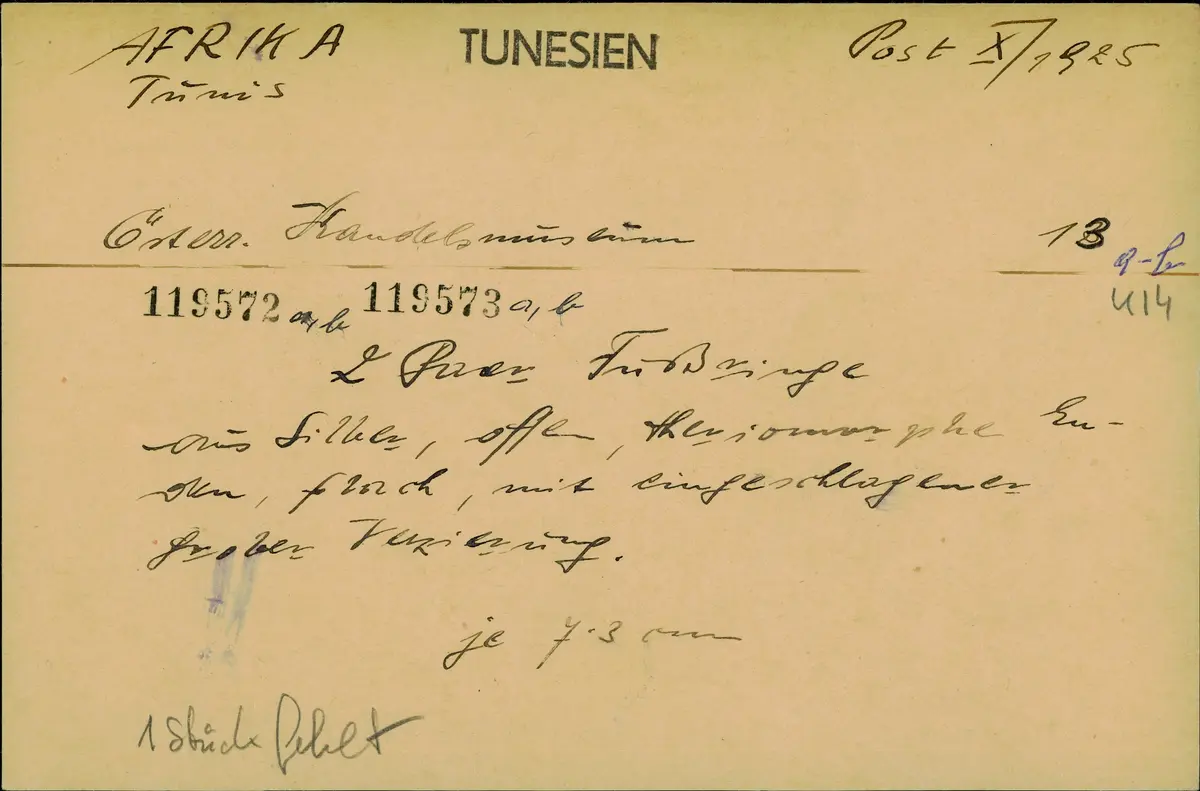 AFRIKA TUNESIEN Post X/1925
Tunis
Österr. Handelsmuseum 13
a-b
U14
119572 a, b 119573 a, b
2 Paar Fußringe
aus Silber, offen, theriomorphe En-
den, flach, mit eingeschlagener
grober Verzierung.
je 7·3 cm
1 Stück fehlt